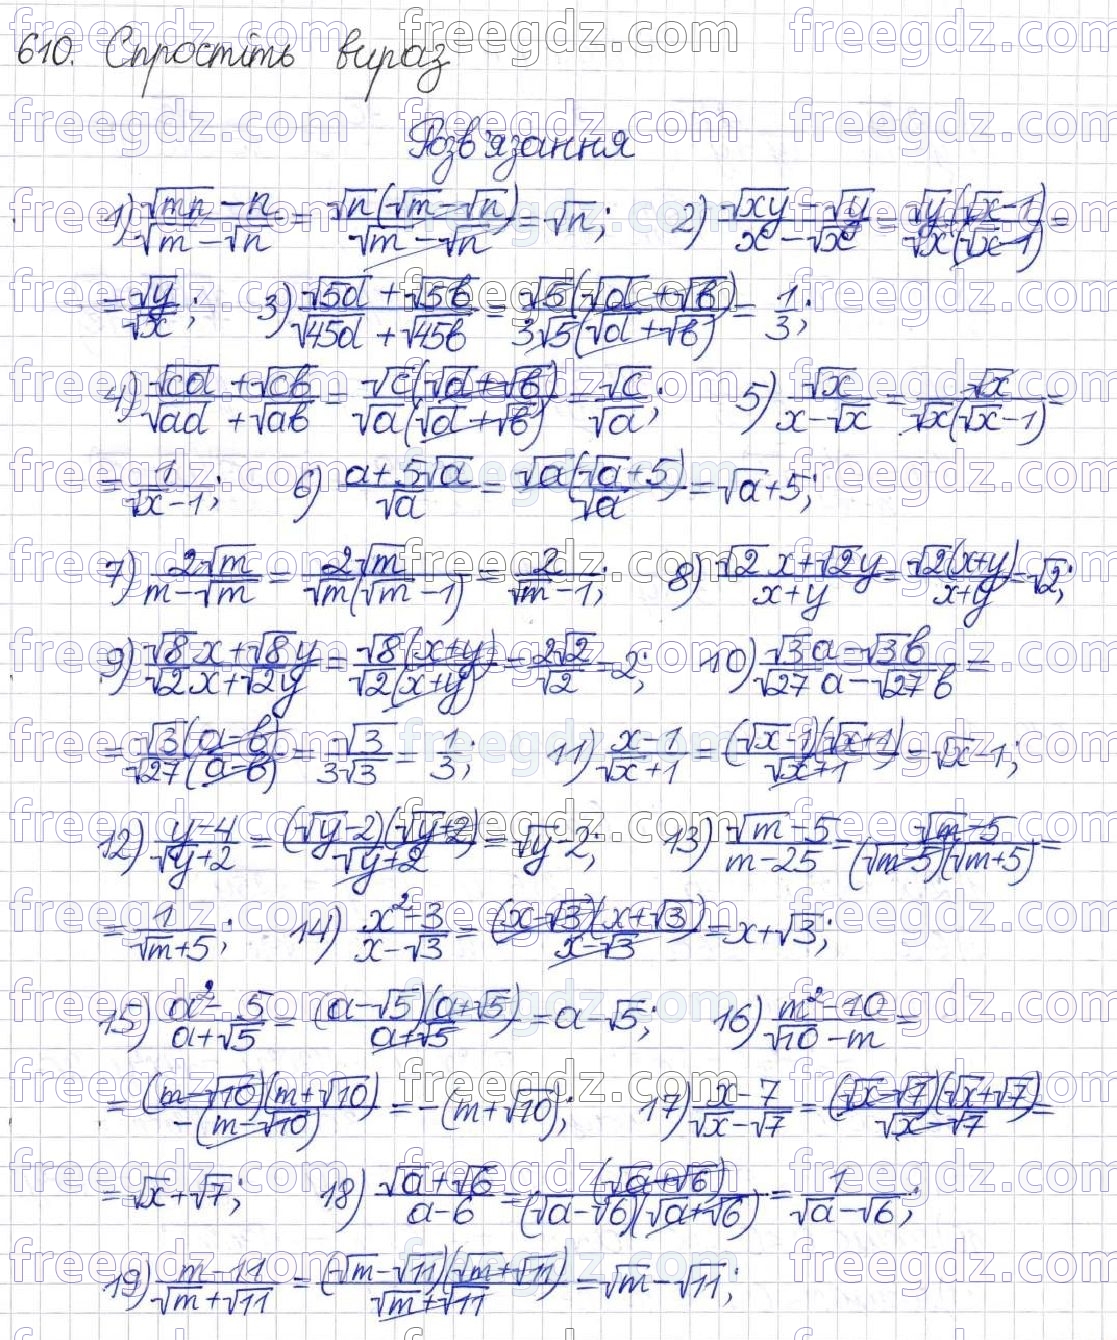 610. Спростіть вираз
Розв'язання
1) (√mn − n)/(√m − √n) = √n(√m − √n)/(√m − √n) = √n; 2) (√xy − √y)/(x − √x) = √y(√x − 1)/√x(√x − 1) =
= √y/√x; 3) (√5a + √5b)/(√45a + √45b) = √5(√a + √b)/3√5(√a + √b) = 1/3;
4) (√cd + √cb)/(√ad + √ab) = √c(√d + √b)/√a(√d + √b) = √c/√a; 5) √x/(x − √x) = √x/√x(√x − 1) =
= 1/(√x − 1); 6) (a + 5√a)/√a = √a(√a + 5)/√a = √a + 5;
7) 2√m/(m − √m) = 2√m/√m(√m − 1) = 2/(√m − 1); 8) (√2x + √2y)/(x + y) = √2(x + y)/(x + y) = √2;
9) (√8x + √8y)/(√2x + √2y) = √8(x + y)/√2(x + y) = 2√2/√2 = 2; 10) (√3a − √3b)/(√27a − √27b) =
= √3(a − b)/√27(a − b) = √3/3√3 = 1/3; 11) (x − 1)/(√x + 1) = (√x − 1)(√x + 1)/(√x + 1) = √x − 1;
12) (y − 4)/(√y + 2) = (√y − 2)(√y + 2)/(√y + 2) = √y − 2; 13) (√m − 5)/(m − 25) = (√m − 5)/(√m − 5)(√m + 5) =
= 1/(√m + 5); 14) (x² − 3)/(x − √3) = (x − √3)(x + √3)/(x − √3) = x + √3;
15) (a² − 5)/(a + √5) = (a − √5)(a + √5)/(a + √5) = a − √5; 16) (m² − 10)/(√10 − m) =
= (m − √10)(m + √10)/−(m − √10) = −(m + √10); 17) (x − 7)/(√x − √7) = (√x − √7)(√x + √7)/(√x − √7) =
= √x + √7; 18) (√a + √6)/(a − 6) = (√a + √6)/(√a − √6)(√a + √6) = 1/(√a − √6);
19) (m − 11)/(√m + √11) = (√m − √11)(√m + √11)/(√m + √11) = √m − √11;
freegdz.com